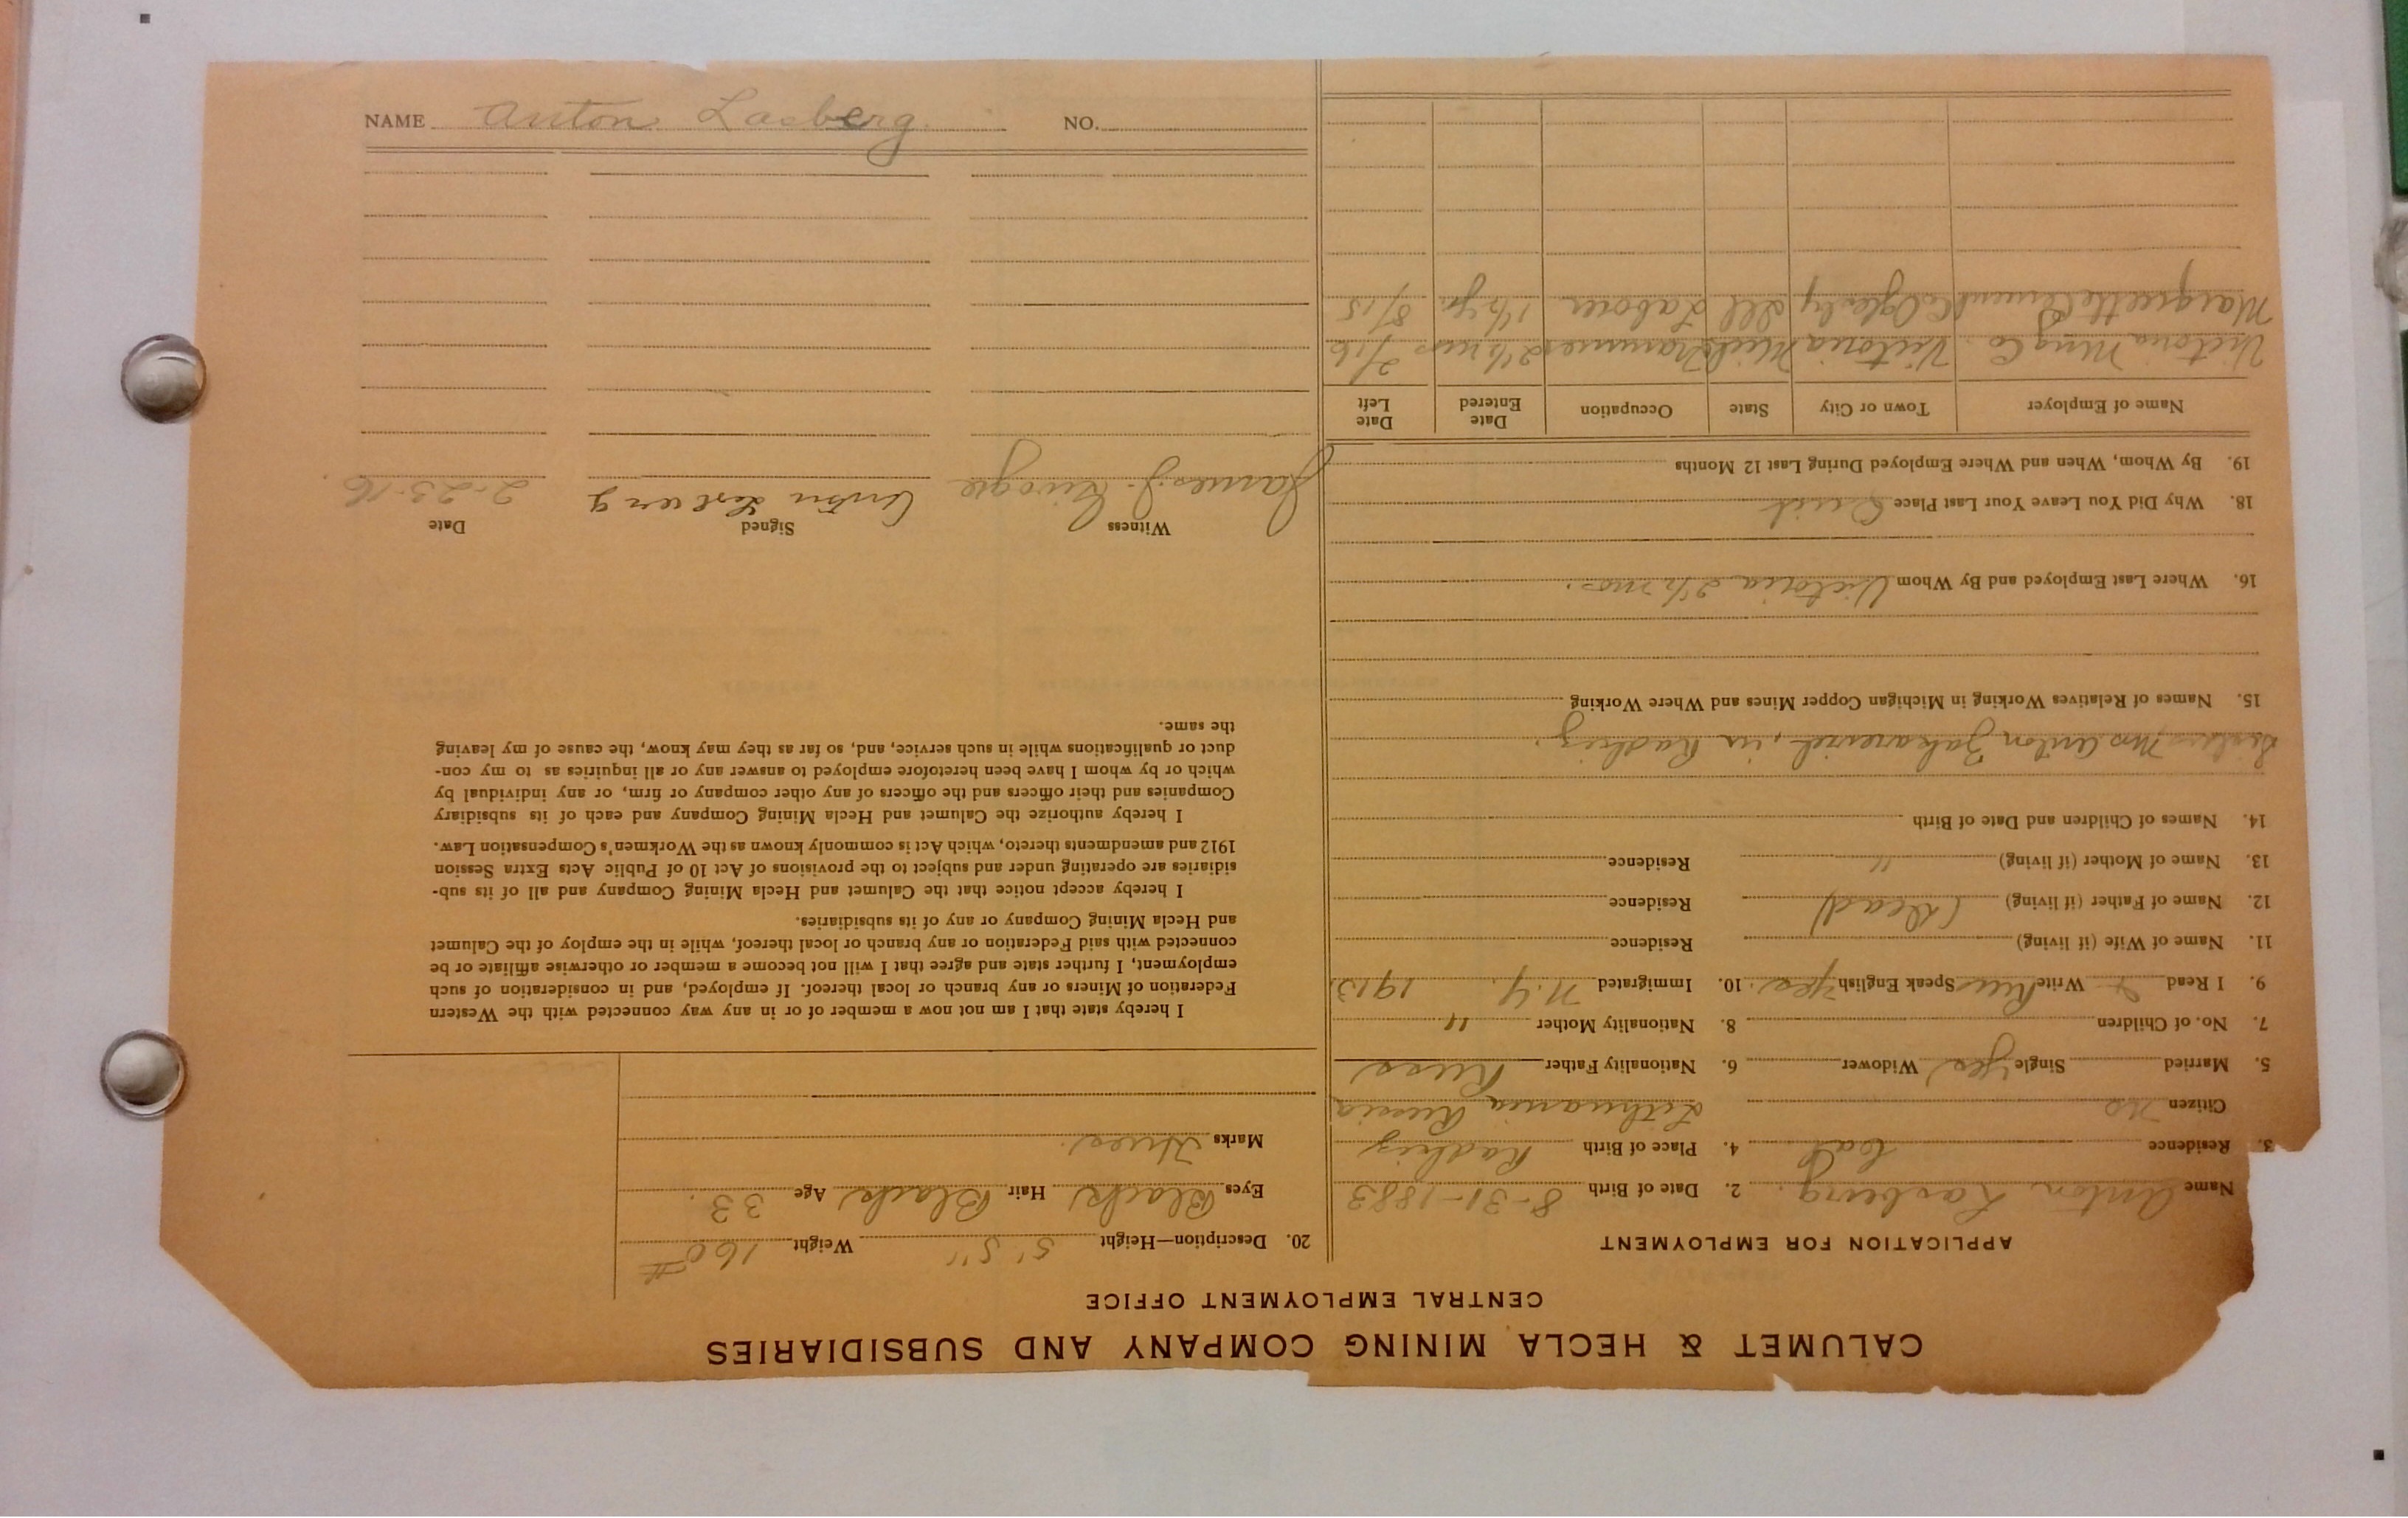 CALUMET & HECLA MINING COMPANY AND SUBSIDIARIES
CENTRAL EMPLOYMENT OFFICE
APPLICATION FOR EMPLOYMENT
Name Anton Lasberg. 2. Date of Birth 8-31-1883
3. Residence Cal 4. Place of Birth
Citizen no Lithuania Russia
5. Married Single yes Widower 6. Nationality Father Russ
7. No. of Children 8. Nationality Mother "
9. I Read & Write Russ Speak English yes. 10. Immigrated N.Y. 1913.
11. Name of Wife (if living) Residence
12. Name of Father (if living) (Dead) Residence
13. Name of Mother (if living) " Residence
14. Names of Children and Date of Birth
Mrs Anton in
15. Names of Relatives Working in Michigan Copper Mines and Where Working
16. Where Last Employed and By Whom Victoria 2½ mos.
18. Why Did You Leave Your Last Place Quit
19. By Whom, When and Where Employed During Last 12 Months
Name of Employer Town or City State Occupation Date Entered Date Left
Victoria Mng Co. Victoria Mich Trammer 2½ mos 2/16
Marquette Cement Co Oglesby Ill Laborer 1½ yr. 8/15
20. Description—Height 5' 5" Weight 160#
Eyes Black Hair Black Age 33.
Marks
I hereby state that I am not now a member of or in any way connected with the Western
Federation of Miners or any branch or local thereof. If employed, and in consideration of such
employment, I further state and agree that I will not become a member or otherwise affiliate or be
connected with said Federation or any branch or local thereof, while in the employ of the Calumet
and Hecla Mining Company or any of its subsidiaries.
I hereby accept notice that the Calumet and Hecla Mining Company and all of its sub-
sidiaries are operating under and subject to the provisions of Act 10 of Public Acts Extra Session
1912 and amendments thereto, which Act is commonly known as the Workmen's Compensation Law.
I hereby authorize the Calumet and Hecla Mining Company and each of its subsidiary
Companies and their officers and the officers of any other company or firm, or any individual by
which or by whom I have been heretofore employed to answer any or all inquiries as to my con-
duct or qualifications while in such service, and, so far as they may know, the cause of my leaving
the same.
Witness Signed Date
James J. Anton 2-23-16.
NAME Anton Lasberg. NO.